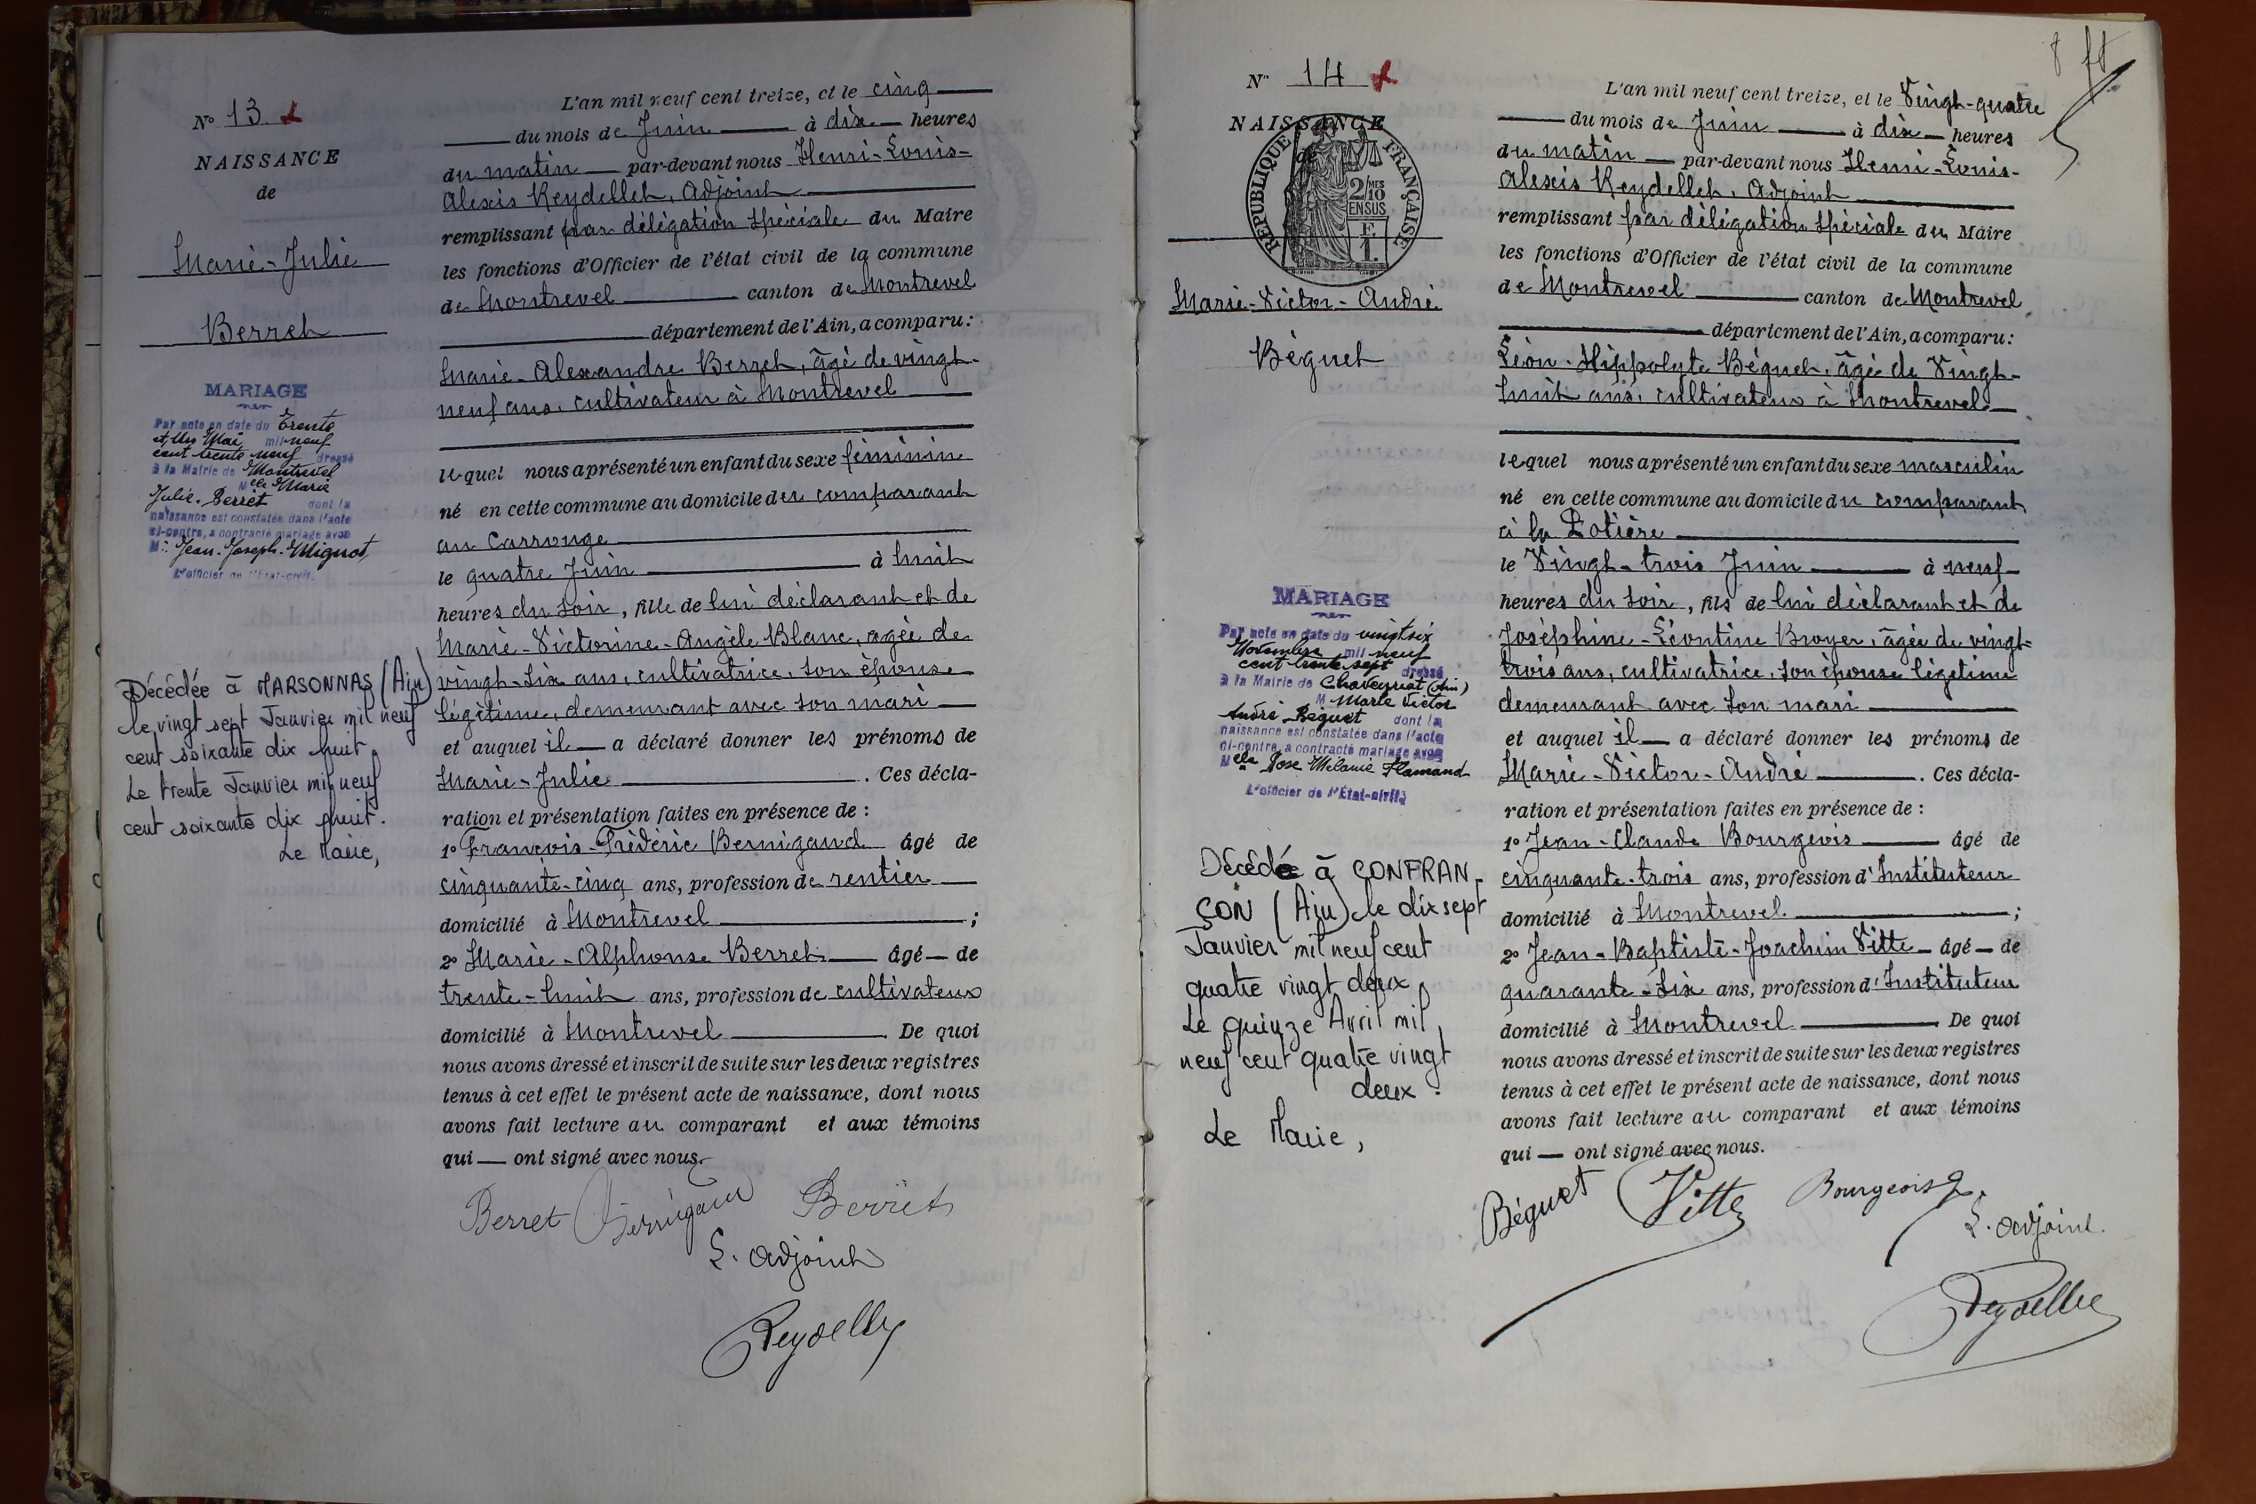 N° 13
NAISSANCE
de
Marie-Julie
Berret
MARIAGE
Par acte en date du Trente
et Un Mai mil neuf
cent trente neuf dressé
à la Mairie de Montrevel
Melle Marie
Julie Berret dont la
naissance est constatée dans l'acte
ci-contre, a contracté mariage avec
M. Jean-Joseph-Mignot
L'officier de l'État-civil.
Décédée à MARSONNAS (Ain)
le vingt sept Janvier mil neuf
cent soixante dix huit.
Le trente Janvier mil neuf
cent soixante dix huit.
Le Maire,
L'an mil neuf cent treize, et le cinq
du mois de Juin à dix heures
du matin par-devant nous Henri-Louis-
Alexis Reydellet, Adjoint
remplissant par délégation spéciale du Maire
les fonctions d'Officier de l'état civil de la commune
de Montrevel canton de Montrevel
département de l'Ain, a comparu :
Marie-Alexandre Berret, âgé de vingt-
neuf ans, cultivateur à Montrevel
lequel nous a présenté un enfant du sexe féminin
né en cette commune au domicile du comparant
au Carrouge
le quatre Juin à huit
heures du soir, fille de lui déclarant et de
Marie-Victorine-Angèle Blanc, agée de
vingt-six ans, cultivatrice, son épouse
légitime, demeurant avec son mari
et auquel il a déclaré donner les prénoms de
Marie-Julie . Ces décla-
ration et présentation faites en présence de :
1° François-Frédéric Bernigaud âgé de
cinquante-cinq ans, profession de rentier
domicilié à Montrevel ;
2° Marie-Alphonse Berret âgé de
trente-huit ans, profession de cultivateur
domicilié à Montrevel . De quoi
nous avons dressé et inscrit de suite sur les deux registres
tenus à cet effet le présent acte de naissance, dont nous
avons fait lecture au comparant et aux témoins
qui ont signé avec nous.
Berret Bernigaud Berret
L. adjoint
Reydellet
8
N° 14
NAISSANCE
de
RÉPUBLIQUE FRANÇAISE
2/10 MES
EN SUS
F.
1.
Marie-Victor-André
Béguet
MARIAGE
Par acte en date du vingt six
Novembre mil neuf
cent trente sept dressé
à la Mairie de Chaveyriat (Ain)
M Marie Victor
André Béguet dont la
naissance est constatée dans l'acte
ci-contre, a contracté mariage avec
Melle Rose Mélanie Flamand
L'officier de l'État-civil,
Décédé à CONFRAN-
ÇON (Ain) le dix sept
Janvier mil neuf cent
quatre vingt deux.
Le quinze Avril mil
neuf cent quatre vingt
deux.
Le Maire,
L'an mil neuf cent treize, et le Vingt-quatre
du mois de Juin à dix heures
du matin par-devant nous Henri-Louis-
Alexis Reydellet, Adjoint
remplissant par délégation spéciale du Maire
les fonctions d'Officier de l'état civil de la commune
de Montrevel canton de Montrevel
département de l'Ain, a comparu :
Léon-Hippolyte Béguet, âgé de Vingt-
huit ans, cultivateur à Montrevel
lequel nous a présenté un enfant du sexe masculin
né en cette commune au domicile du comparant
à la Potière
le Vingt-trois Juin à neuf
heures du soir, fils de lui déclarant et de
Joséphine-Léontine Broyer, âgée de vingt-
trois ans, cultivatrice, son épouse légitime
demeurant avec son mari
et auquel il a déclaré donner les prénoms de
Marie-Victor-André . Ces décla-
ration et présentation faites en présence de :
1° Jean-Claude Bourgeois âgé de
cinquante-trois ans, profession d'Instituteur
domicilié à Montrevel ;
2° Jean-Baptiste-Joachim Vitte âgé de
quarante-six ans, profession d'Instituteur
domicilié à Montrevel . De quoi
nous avons dressé et inscrit de suite sur les deux registres
tenus à cet effet le présent acte de naissance, dont nous
avons fait lecture au comparant et aux témoins
qui ont signé avec nous.
Béguet Vitte Bourgeois
L. adjoint.
Reydellet